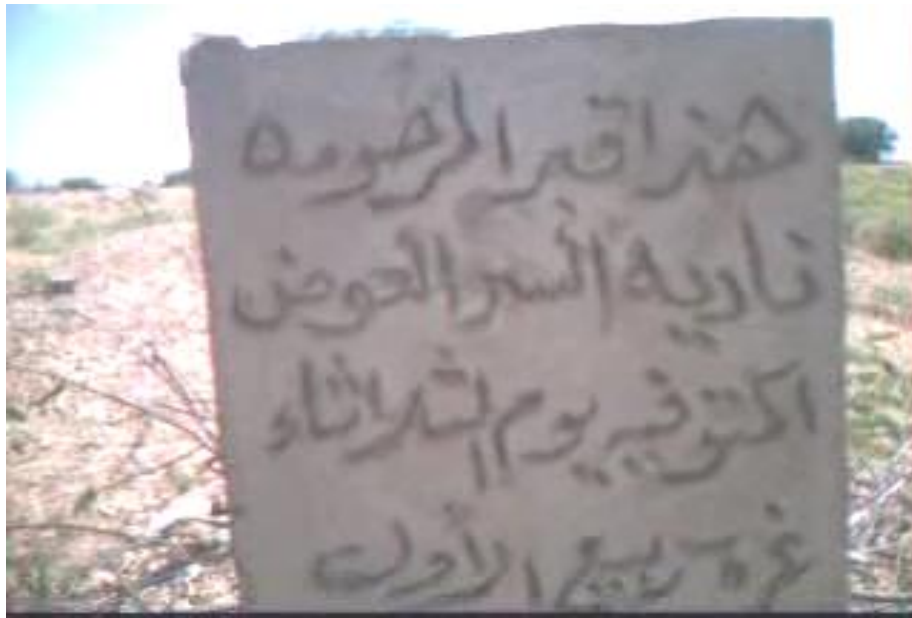 هذا قبر المرحومه
ناديه السر العوض
المتوفيه يوم الثلاثاء
غرة ربيع الأول